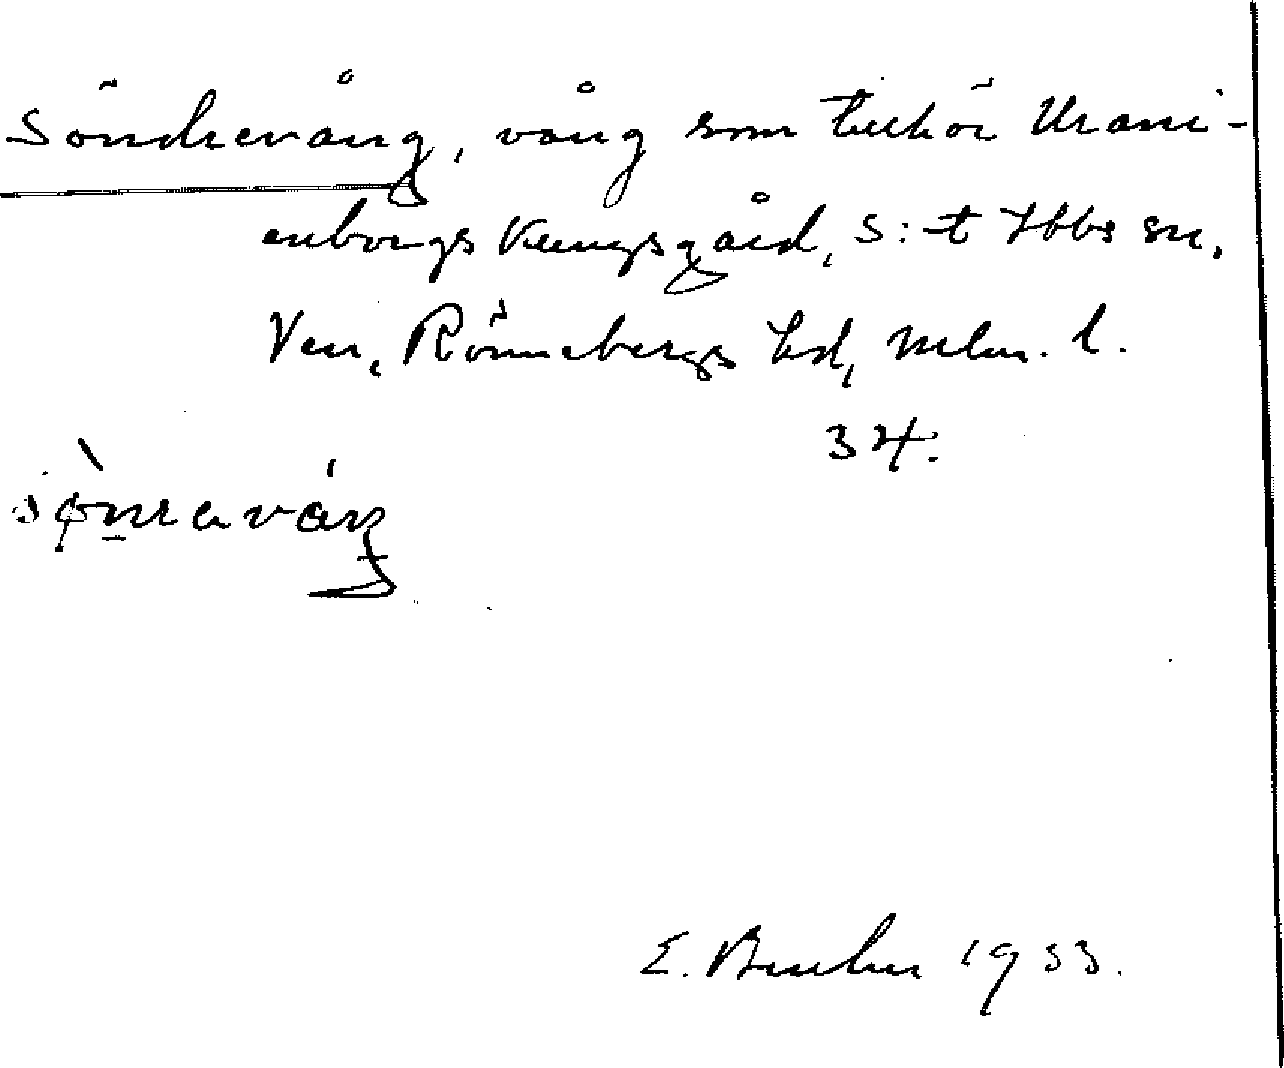 Söndrevång, vång som tillhör Urani-
enborgs Kungsgård, S:t Ibbs sn,
Ven, Rönnebergs hd, Mlm. l.
34.
sǫ̀nraváŋ
E. 1933.